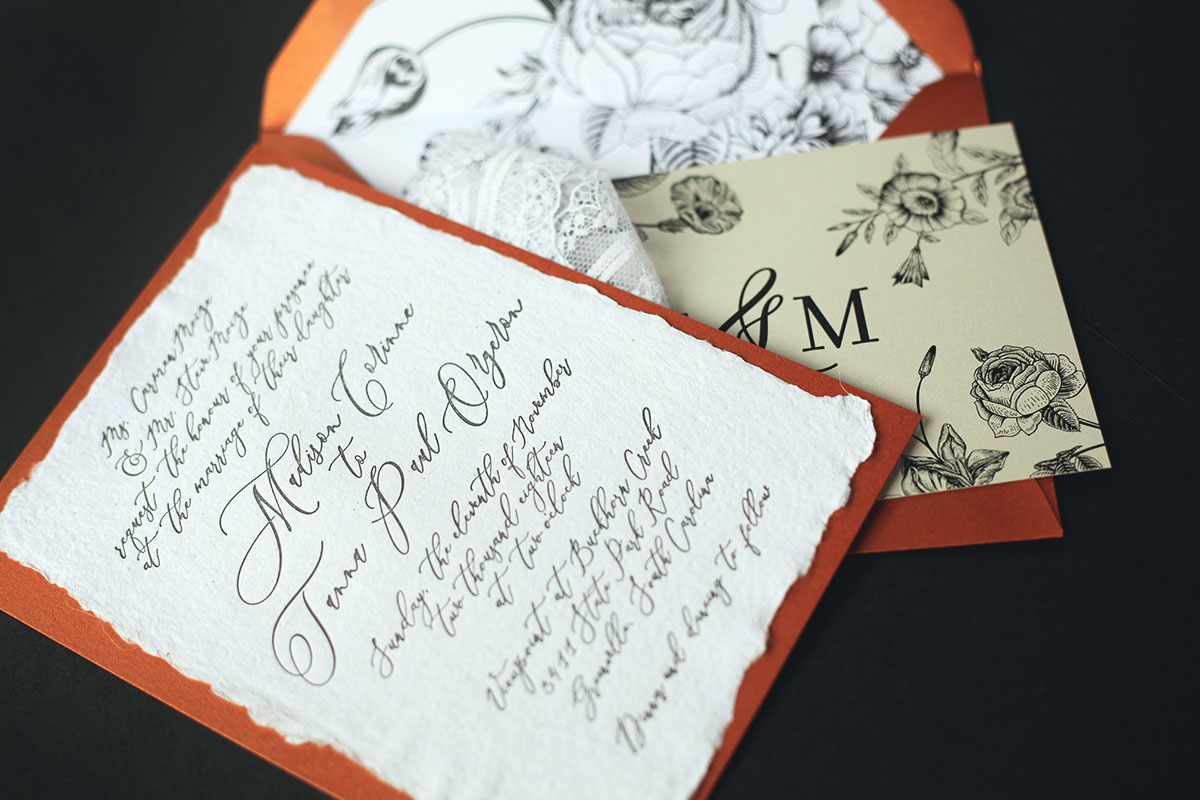 Ms. Carmen Maize
& Mr. Steve Maize
request the honour of your presence
at the marriage of their daughter
Madison Corinne
to
Paul Orgeron
Sunday, the eleventh of November
two thousand eighteen
at two oclock
at Buckhorn Creek
State Park Road
South Carolina
Dinner and dancing to follow
& M